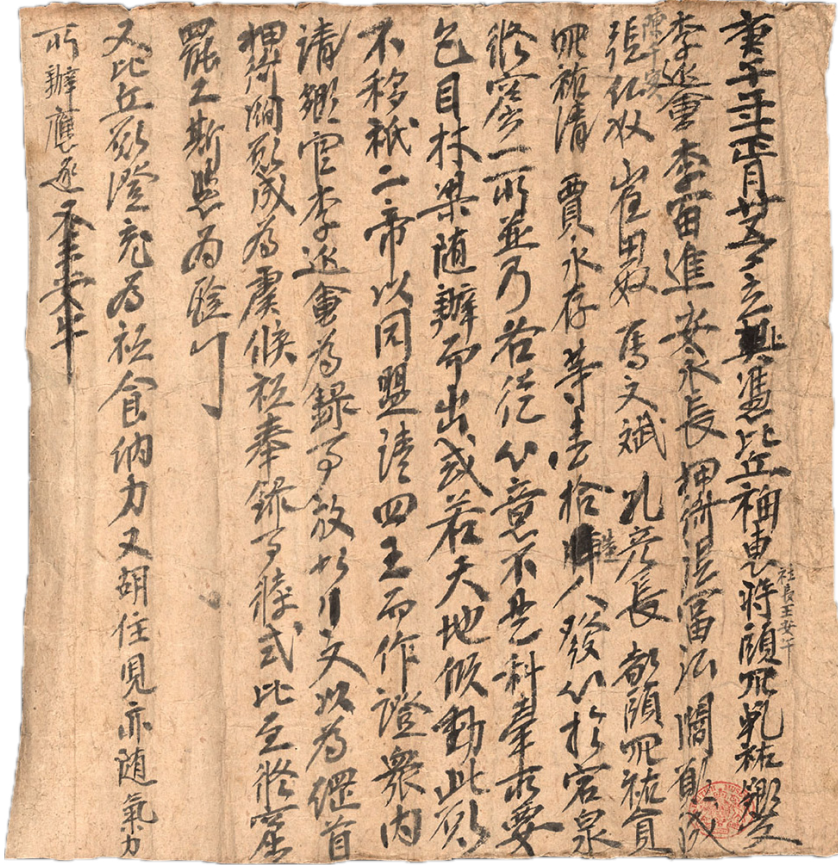 庚午年正月廿五日立憑比丘福惠將頭羅乾祐鄉官
社長王安午
李延會李富進安永長押衙張富弘閻願成
陳千宝
張佛奴崔田奴馬文斌孔彥長都頭羅祐員
羅祐清賈永存等壹拾陸人發心於宕泉
修窟一所並乃各從心意不是科牽所要
色目材梁隨辦而出或若天地傾動此願
不移祇二帝以同盟請四王而作證衆內
請鄉官李延會為錄事放帖行文以為綱首
押衙閻願成為虞候祗奉錄事條式比至修窟
罷日斯憑為驗
又比丘願澄充為社食納力又胡住兒亦隨氣力
所辦應逐 王安午